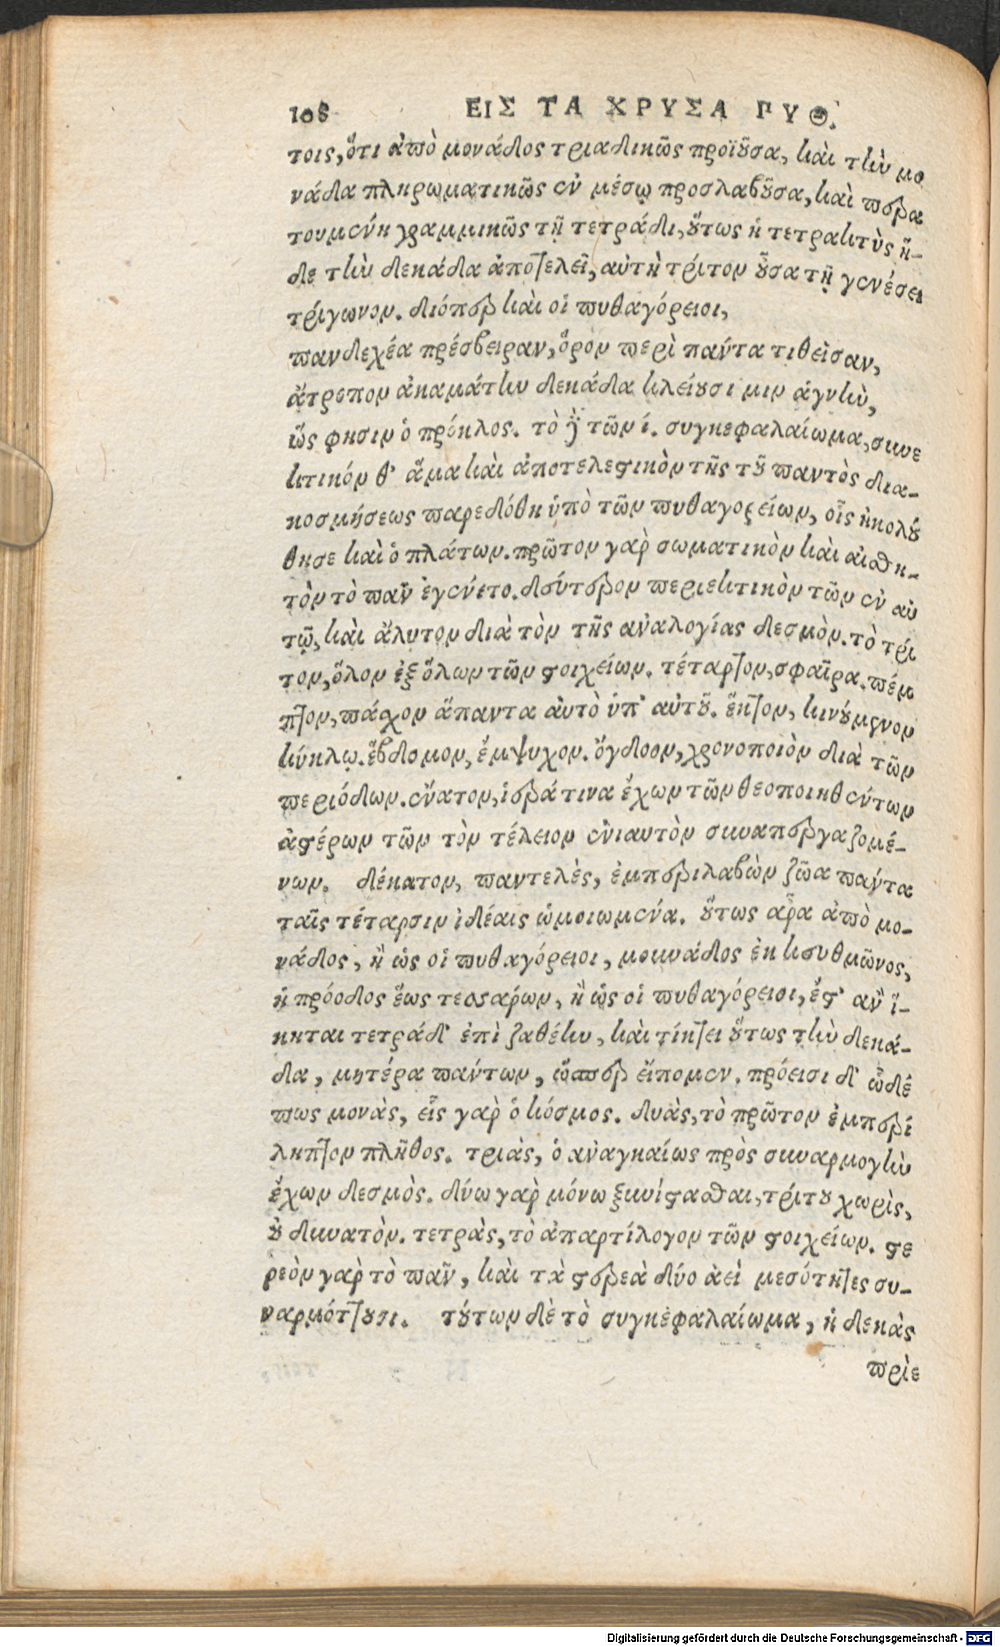 108 ΕΙΣ ΤΑ ΧΡΥΣΑ ΠΥΘ.
τοις, ὅτι ἀπὸ μονάδος τριαδικῶς προϊοῦσα, καὶ τὴν μο
νάδα πληρωματικῶς ἐν μέσῳ προσλαβοῦσα, καὶ παρα
τουμένη γραμμικῶς τῇ τετράδι, οὕτως ἡ τετρακτὺς ἤ-
δε τὴν δεκάδα ἀποτελεῖ, αὐτὴ τρίτον οὖσα τῇ γενέσει
τρίγωνον. διόπερ καὶ οἱ πυθαγόρειοι,
πανδεχέα πρέσβειραν, ὅρον περὶ πάντα τιθεῖσαν,
ἄτροπον ἀκαμάτην δεκάδα κλείουσί μιν ἁγνὴν,
ὥς φησιν ὁ πρόκλος. τὸ γοῦν τῶν ί. συγκεφαλαίωμα, συνε
κτικόν θ' ἅμα καὶ ἀποτελεστικὸν τῆς τοῦ παντὸς δια-
κοσμήσεως παρεδόθη ὑπὸ τῶν πυθαγορείων, οἷς ἠκολού
θησε καὶ ὁ πλάτων. πρῶτον γὰρ σωματικὸν καὶ αἰσθη-
τὸν τὸ πᾶν ἐγένετο. δεύτερον περιεκτικὸν τῶν ἐν αὐ
τῷ, καὶ ἄλυτον διὰ τὸν τῆς ἀναλογίας δεσμὸν. τὸ τρί
τον, ὅλον ἐξ ὅλων τῶν στοιχείων. τέταρτον, σφαῖρα. πέμ
πτον, πάσχον ἅπαντα αὐτὸ ὑπ' αὐτοῦ. ἕκτον, κινούμενον
κύκλῳ. ἕβδομον, ἔμψυχον. ὄγδοον, χρονοποιὸν διὰ τῶν
περιόδων. ἔνατον, ἱερά τινα ἔχων τῶν θεοποιηθέντων
ἀστέρων τῶν τὸν τέλειον ἐνιαυτὸν συναπεργαζομέ-
νων. δέκατον, παντελὲς, ἐμπεριλαβὼν ζῶα πάντα
ταῖς τέταρσιν ἰδέαις ὡμοιωμένα. οὕτως ἄρα ἀπὸ μο-
νάδος, ἢ ὡς οἱ πυθαγόρειοι, μουνάδος ἐκ κευθμῶνος,
ἡ πρόοδος ἕως τεσσάρων, ἢ ὡς οἱ πυθαγόρειοι, ἔστ' ἂν ἵ-
κηται τετράδ' ἐπὶ ζαθέην, καὶ τίκτει οὕτως τὴν δεκά-
δα, μητέρα πάντων, ὥσπερ εἴπομεν. πρόεισι δ' ὧδέ
πως μονὰς, εἷς γὰρ ὁ κόσμος. δυὰς, τὸ πρῶτον ἐμπερί
ληπτον πλῆθος. τριὰς, ὁ ἀναγκαίως πρὸς συναρμογὴν
ἔχων δεσμὸς. δύω γὰρ μόνω ξυνίστασθαι, τρίτου χωρὶς,
οὐ δυνατὸν. τετρὰς, τὸ ἀπαρτίλογον τῶν στοιχείων. στε
ρεὸν γὰρ τὸ πᾶν, καὶ τὰ στερεὰ δύο ἀεὶ μεσότητες συ-
ναρμόττουσι. τούτων δὲ τὸ συγκεφαλαίωμα, ἡ δεκὰς
περιε
Digitalisierung gefördert durch die Deutsche Forschungsgemeinschaft - DFG